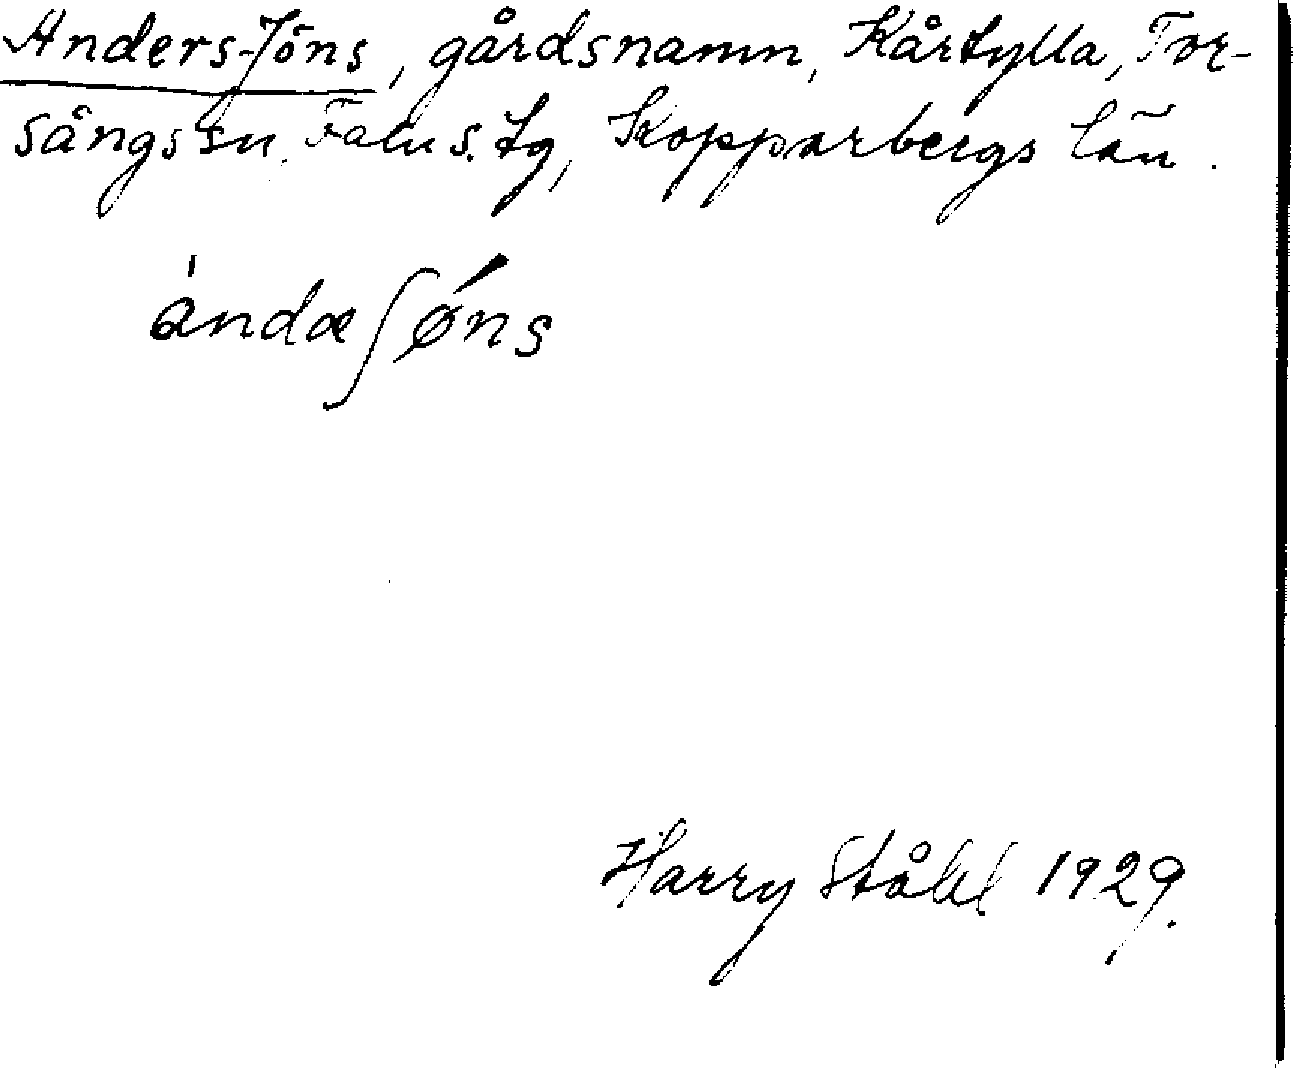 Anders-Jöns, gårdsnamn, Kårtylla, Tor-
sångs sn. Falu s. tg, Kopparbergs län.
àndæʃǿns
Harry Ståhl 1929.